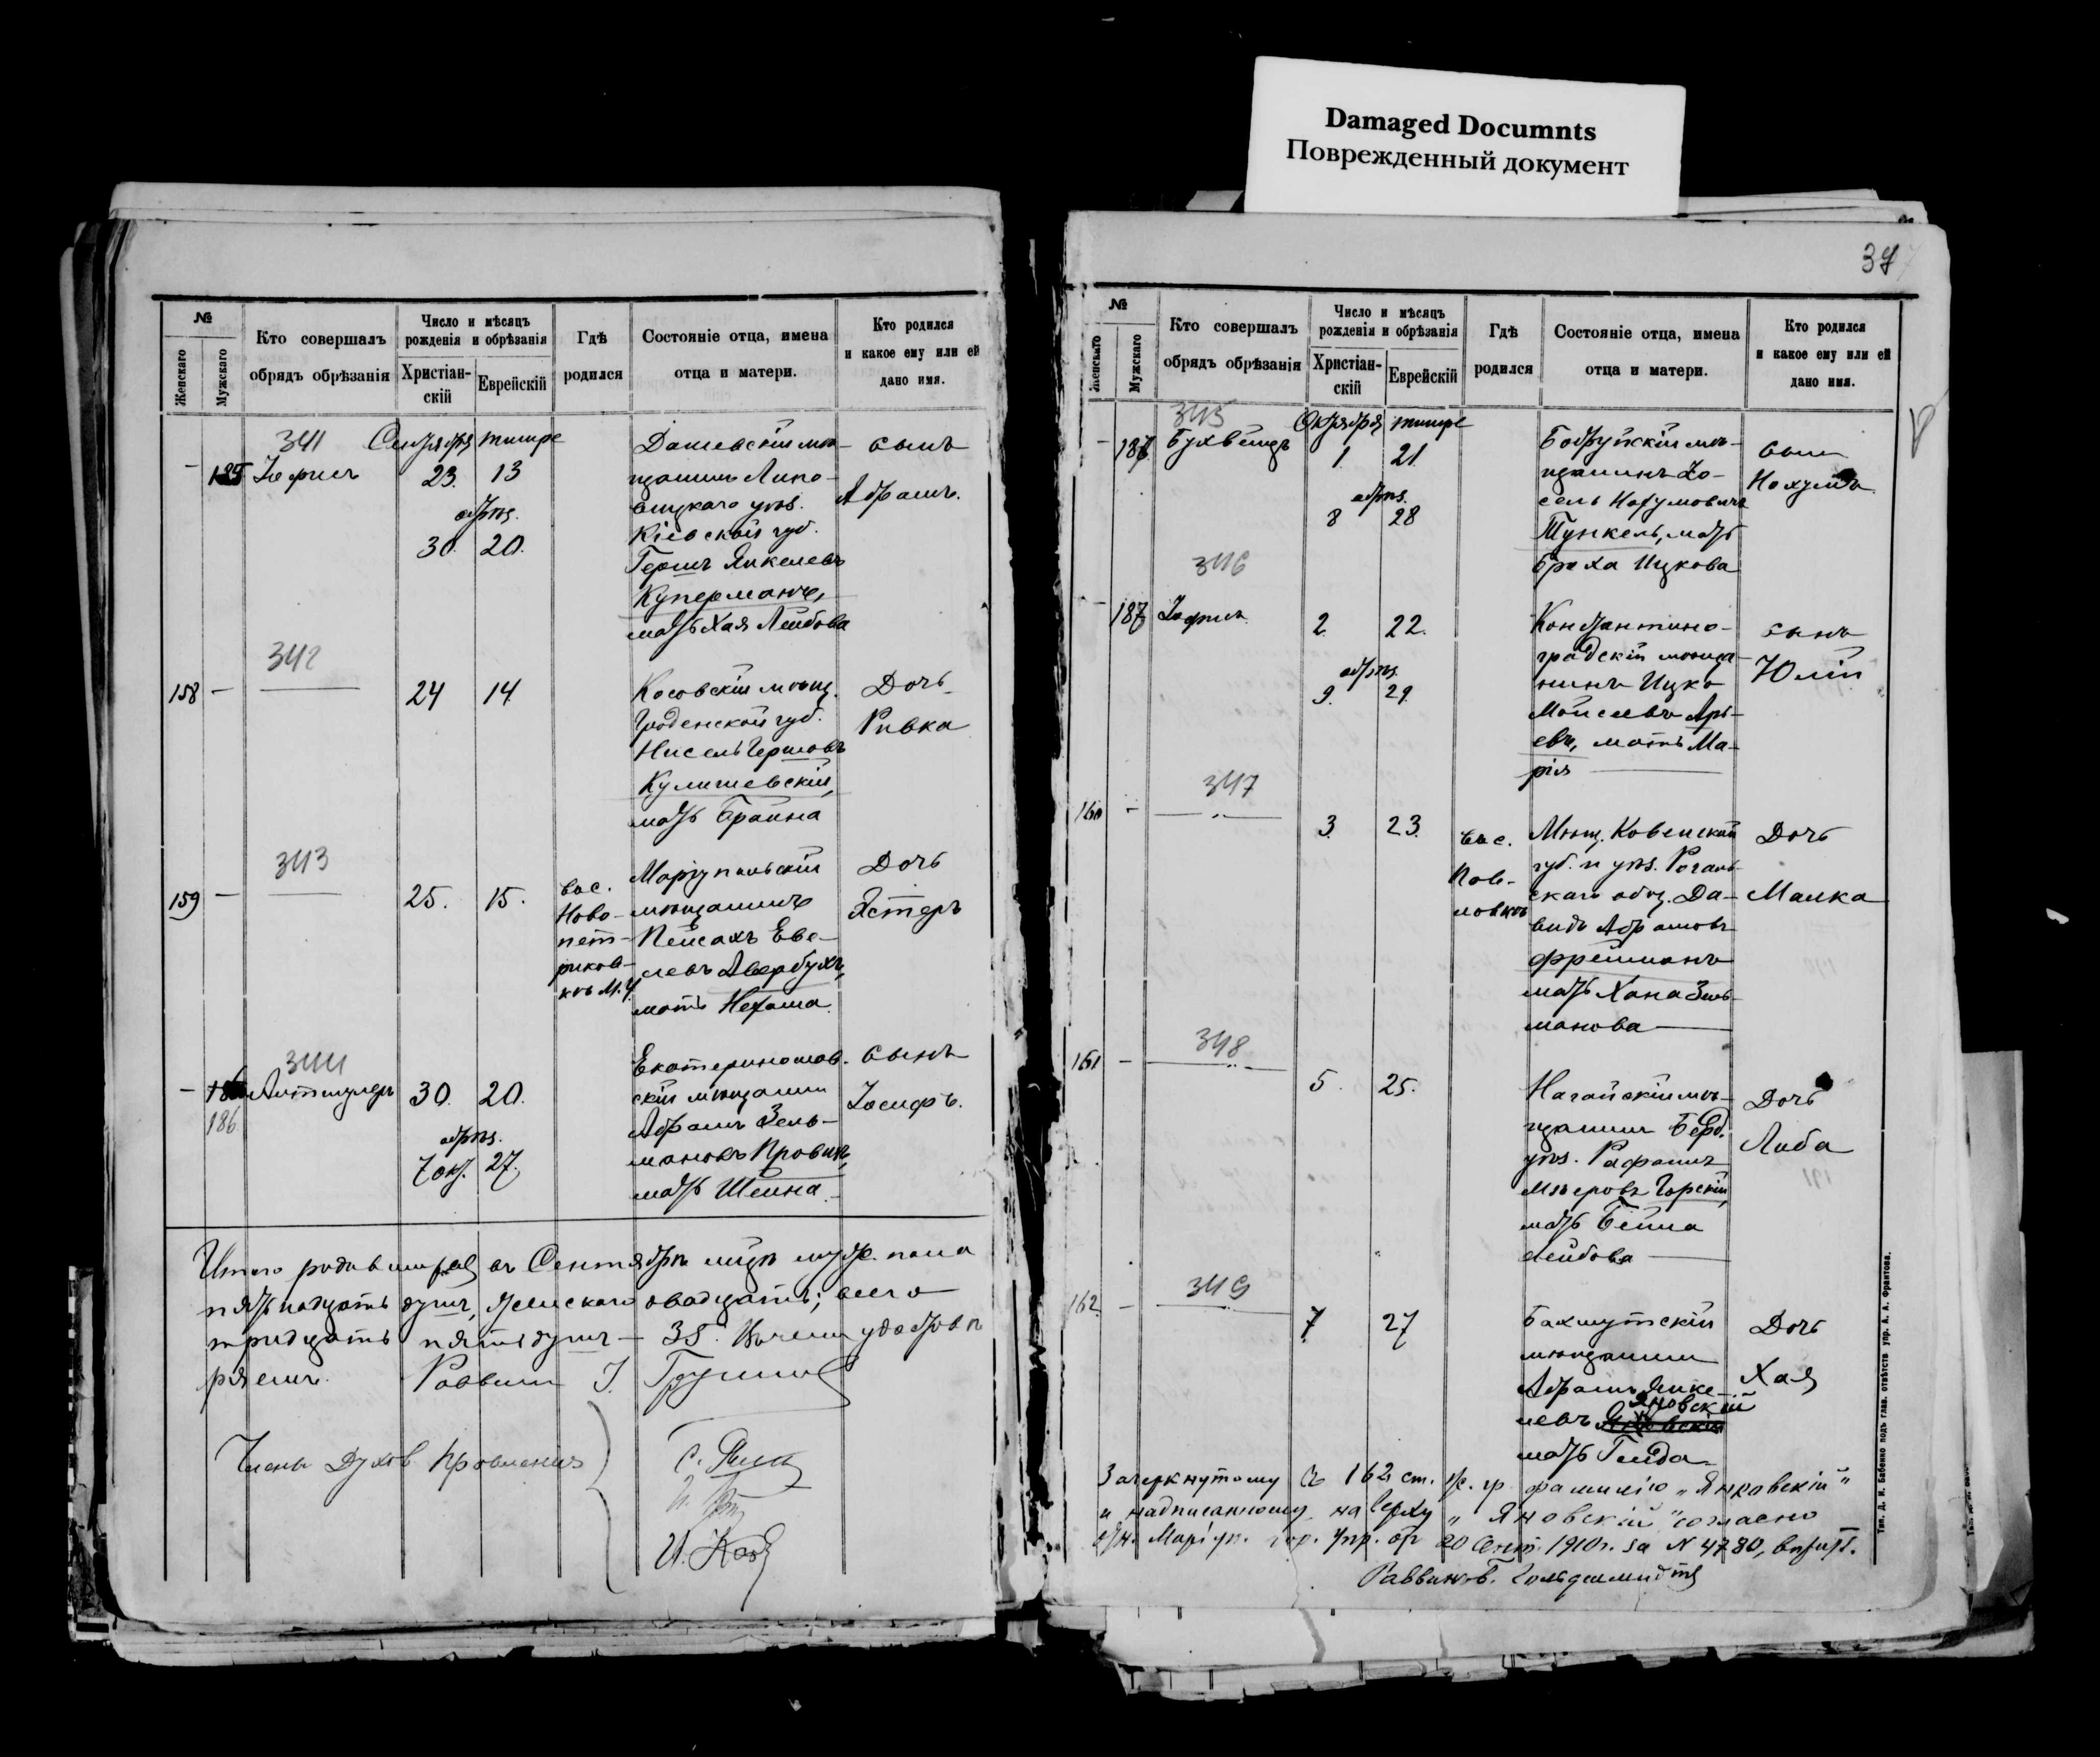 Damaged Documnts
Поврежденный документ
№
Женскаго
Мужскаго
Кто совершалъ
обрядъ обрѣзанія
Число и мѣсяцъ
рожденія и обрѣзанія
Христіан-
скій
Еврейскій
Гдѣ
родился
Состояніе отца, имена
отца и матери.
Кто родился
и какое ему или ей
дано имя.
341 Сентября тишре
– 185
23. 13
обрѣз.
30. 20.
Дашевскій мѣ-
щанинъ Липо-
вецкаго уѣз.
Кіевской губ.
Гершъ Янкелевъ
Куперманъ,
мать Хая Лейбова
сынъ
Абрамъ.
342
158 –
24 14
Косовскій мѣщ.
Гродненской губ.
Нисель Гершовъ
Кулишевскій,
мать Брайна
Дочь
Ривка
343
159 –
25. 15.
въ с.
Ново-
пет-
риков-
кѣ М. У.
Маріупольскій
мѣщанинъ
Пейсахъ Еве-
левъ Авербухъ,
мать Нехама
Дочь
Эстеръ
344
– 186 Альтшулеръ
186
30. 20.
обрѣз.
7 окт. 27.
Екатеринослав.
скій мѣщанин
Абрамъ Зель-
мановъ Провизъ,
мать Шейна
сынъ
Іосифъ.
Итого родившихся въ Сентябрѣ мцѣ мужск. пола
пятьнадцать душъ, женскаго двадцать; всего
тридцать пять душъ – 35. Въ чемъ удостовѣ
ряемъ. Раввинъ
Члены Духов Правленія
397
№
Женскаго
Мужскаго
Кто совершалъ
обрядъ обрѣзанія
Число и мѣсяцъ
рожденія и обрѣзанія
Христіан-
скій
Еврейскій
Гдѣ
родился
Состояніе отца, имена
отца и матери.
Кто родился
и какое ему или ей
дано имя.
345 Октября тишре
– 187
1. 21
обрѣз.
8 28
Бобруйскій мѣ-
щанинъ Іо-
сель Нохумовичъ
Тункель, мать
Браха Ицкова
сынъ
Нохумъ
346
– 187
2. 22.
обрѣз.
9. 29.
Константино-
градскій мѣща-
нинъ Ицко
Моисеевъ Арь-
евъ, мать Ма-
рія
сынъ
Юлій
347
160 –
3. 23.
въ с.
Пав-
ловкѣ
Мѣщ. Ковенской
губ. и уѣз. Рогань-
скаго общ. Да-
видъ Абрамовъ
Фрейманъ
мать Хана Зель-
манова
Дочь
Малка
348
161 –
5. 25.
Нагайскій мѣ-
щанин Берд.
уѣз. Рафаилъ
Мѣеровъ Горскій,
мать Бейла
Лейбова
Дочь
Либа
349
162. –
7 27
Бахмутскій
мѣщанин
Абрамъ Янке-
Яновскій
левъ
мать Генда
Дочь
Хая
Зачеркнутому въ 162 ст. ж. гр. фамилію „Янковскій"
и надписанному на верху „Яновскій" согласно
отн. Маріуп. гор. Упр. от 20 Сент. 1910 г. за N 4780, вѣрить.
Раввинъ Б. Гольдшмидтъ
Тип. Д. И. Бабенко подъ глав. отвѣтств упр. А. А. Франтова.